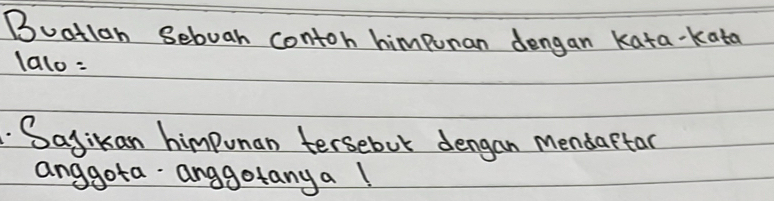 Buatlah sebuah contoh himpunan dengan kata-kata
lalu =
1. Sajikan himpunan tersebut dengan mendaftar
anggota - anggotanya !